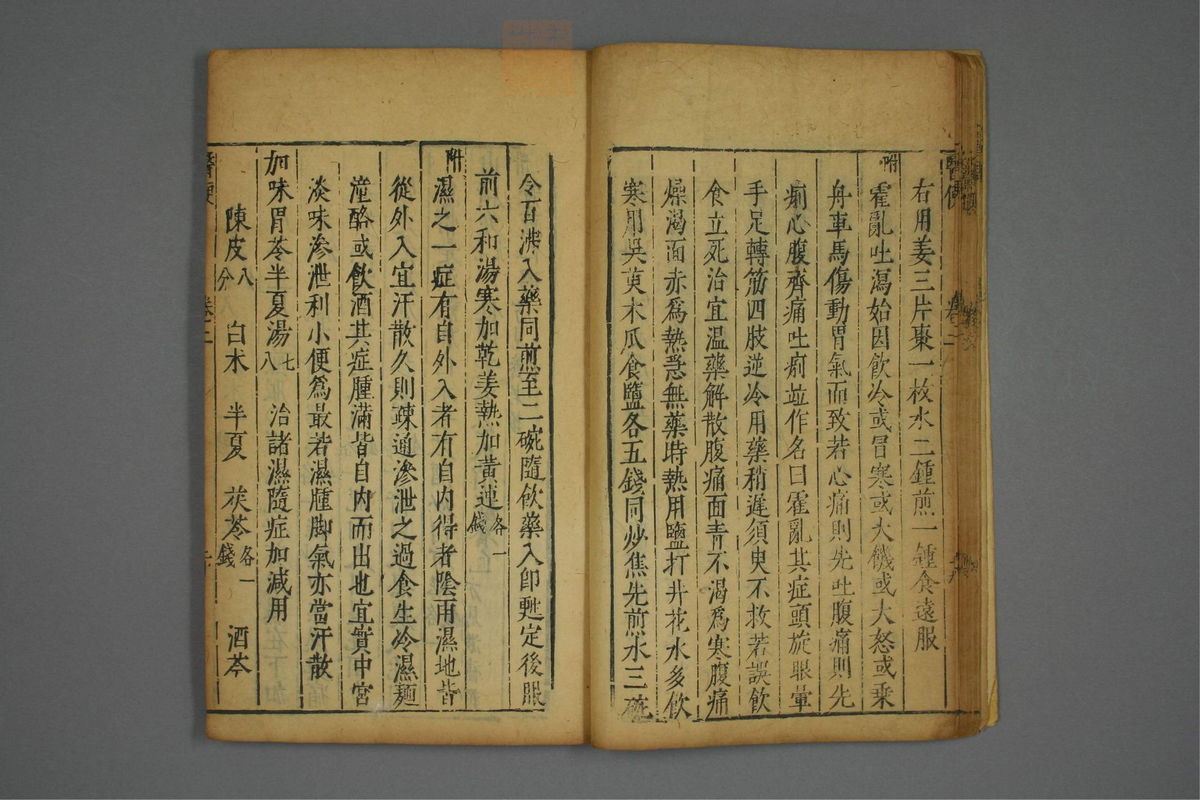 右用姜三片棗一枚水二鍾煎一鍾食遠服
附
霍亂吐瀉始因飲冷或冒寒或大饑或大怒或乗
舟車馬傷動胃氣而致若心痛則先吐腹痛則先
痢心腹齊痛吐痢並作名曰霍亂其症頭旋眼暈
手足轉筋四肢逆冷用藥稍遲須臾不救若誤飲
食立死治宜温藥解散腹痛面青不渴爲寒腹痛
燥渴面赤爲熱忌無藥時熱用鹽打井花水多飲
寒用吳茱木瓜食鹽各五錢同炒焦先煎水三碗
令百沸入藥同煎至二碗隨飲藥入即甦定後服
前六和湯寒加乾姜熱加黃連各一錢
附
濕之一症有自外入者有自内得者陰雨濕地皆
從外入宜汗散久則疎通滲泄之過食生冷濕麵
潼酪或飲酒其症腫滿皆自内而出也宜實中宮
淡味滲泄利小便爲最若濕腫脚氣亦當汗散
加味胃苓半夏湯七八 治諸濕隨症加減用
陳皮八分 白朮 半夏 茯苓各一錢 酒芩
醫便 卷二